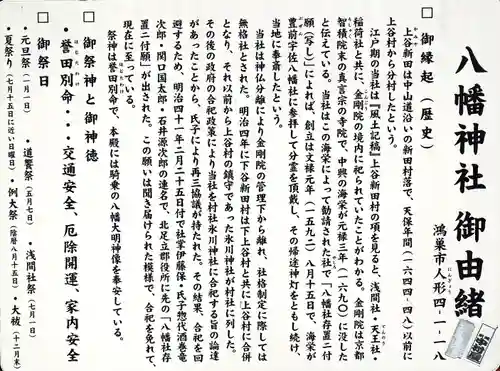 八幡神社 御由緒
鴻巣市人形四-一-一八
にんぎょう
□ 御縁起（歴史）
上谷新田は中山道沿いの新田村落で、天保年間（一六四四-四八）以前に
かみや
上谷村から分村したという。
江戸期の当社は『風土記稿』上谷新田村の項を見ると、浅間社・天王社・
てんのう
稲荷社と共に、金剛院の境内に祀られていたことがわかる。金剛院は京都
智積院末の真言宗の寺院で、中興の海栄が元禄三年（一六九〇）に没した
と伝えている。当社はこの海栄によって勧請された社で「八幡社存置二付
願（写し）」によれば、創立は文禄元年（一五九二）八月十五日で、海栄が
豊前宇佐八幡社に参拝して分霊を頂戴し、その帰途神灯をともし続け、
ぶぜん
当地に奉斎したという。
当社は神仏分離により金剛院の管理下から離れ、社格制定に際しては
無格社とされた。明治四年に下谷新田村は下上谷村と共に上谷村に合併
となり、それ以前から上谷村の鎮守であった氷川神社が村社に列した。
その後の政府の合祀政策により当社を村社氷川神社に合祀する旨の論達
があったことから、氏子により再三協議が持たれた。その結果、合祀を回
避するため、明治四十一年二月二十五日付で社掌伊藤保・氏子惣代酒巻竜
次郎・関口国太郎・石井源次郎の連名で、北足立郡役所に先の「八幡社存
置二付願」が出された。この願いは聞き届けられた模様で、合祀を免れて、
現在に至っている。
祭神は誉田別命で、本殿には騎乗の八幡大明神像を奉安している。
□ 御祭神と御神徳
・誉田別命…交通安全、厄除開運、家内安全
□ 御祭日
・元旦祭（一月一日）　・道饗祭（五月七日）　・浅間社祭（七月一日）
・夏祭り（七月十五日に近い日曜日）・例大祭（陰暦八月十五日）・大祓（十二月末）